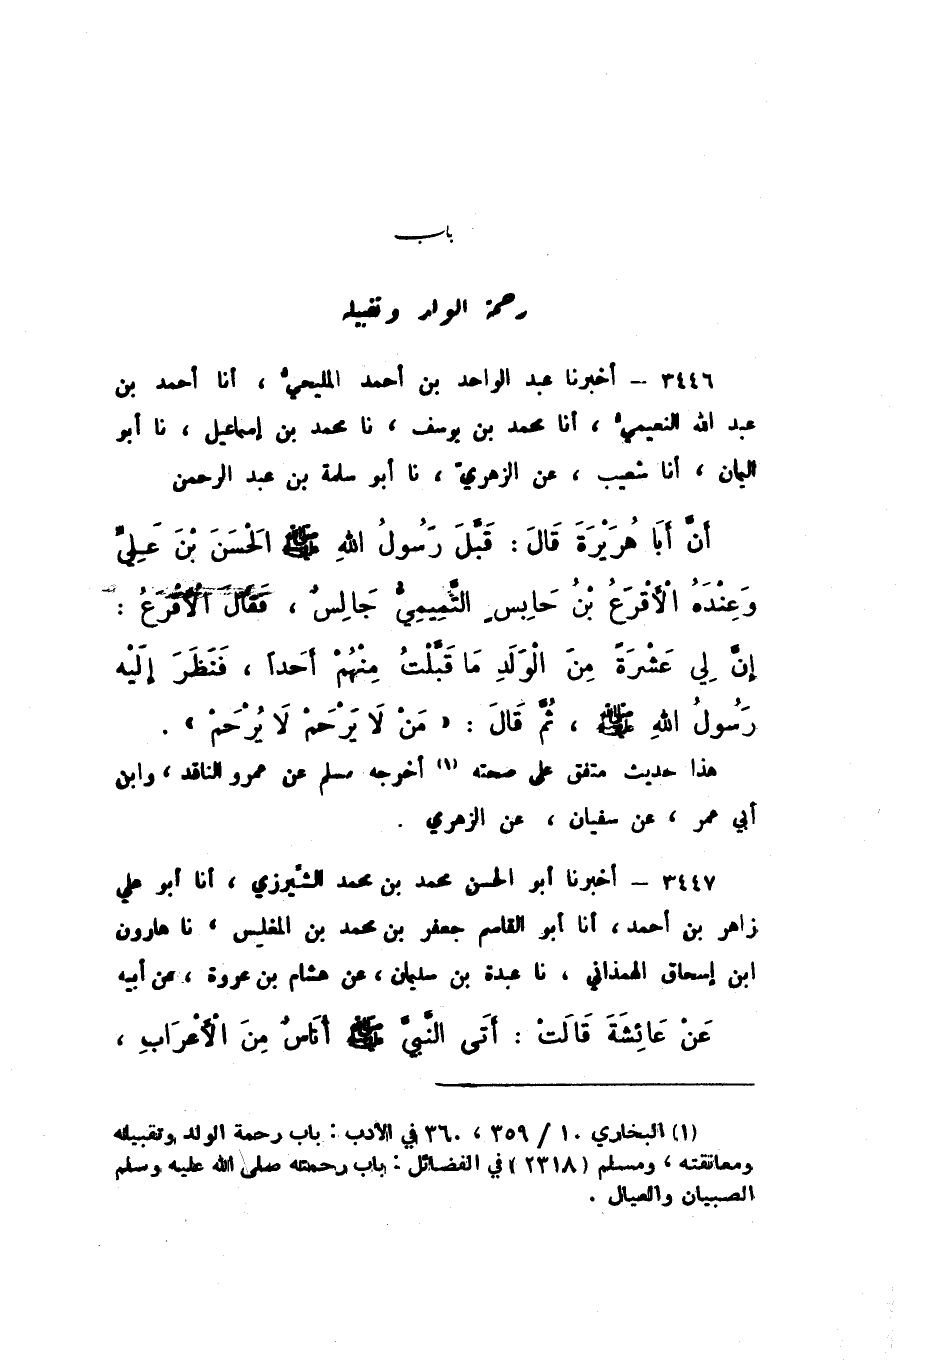 باب
رحمة الولد وتقبيله
٣٤٤٦ – أخبرنا عبد الواحد بن أحمد المليحيُّ ، أنا أحمد بن
عبد الله النعيميُّ ، أنا محمد بن يوسف ، نا محمد بن إسماعيل ، نا أبو
اليمان ، أنا شعيب ، عن الزهريِّ ، نا أبو سلمة بن عبد الرحمن
أَنَّ أَبَا هُرَيْرَةَ قَالَ : قَبَّلَ رَسُولُ اللهِ ﷺ الْحَسَنَ بْنَ عَلِيٍّ
وَعِنْدَهُ الْأَقْرَعُ بْنُ حَابِسٍ التَّمِيمِيُّ جَالِسٌ ، فَقَالَ الْأَقْرَعُ :
إِنَّ لِي عَشْرَةً مِنَ الْوَلَدِ مَا قَبَّلْتُ مِنْهُمْ أَحَداً ، فَنَظَرَ إِلَيْهِ
رَسُولُ اللهِ ﷺ ، ثُمَّ قَالَ : « مَنْ لَا يَرْحَمْ لَا يُرْحَمْ » .
هذا حديث متفق على صحته (١) أخرجه مسلم عن عمرو الناقد ، وابن
أبي عمر ، عن سفيان ، عن الزهري .
٣٤٤٧ – أخبرنا أبو الحسن محمد بن محمد الشَّيرزي ، أنا أبو علي
زاهر بن أحمد ، أنا أبو القاسم جعفر بن محمد بن المغلِّس ، نا هارون
ابن إسحاق الهمذاني ، نا عبدة بن سليمان ، عن هشام بن عروة ، عن أبيه
عَنْ عَائِشَةَ قَالَتْ : أَتَى النَّبِيَّ ﷺ أُنَاسٌ مِنَ الْأَعْرَابِ ،
(١) البخاري ١٠ / ٣٥٩ ، ٣٦٠ في الأدب : باب رحمة الولد وتقبيله
ومعانقته ، ومسلم (٢٣١٨) في الفضائل : باب رحمته صلى الله عليه وسلم
الصبيان والعيال .